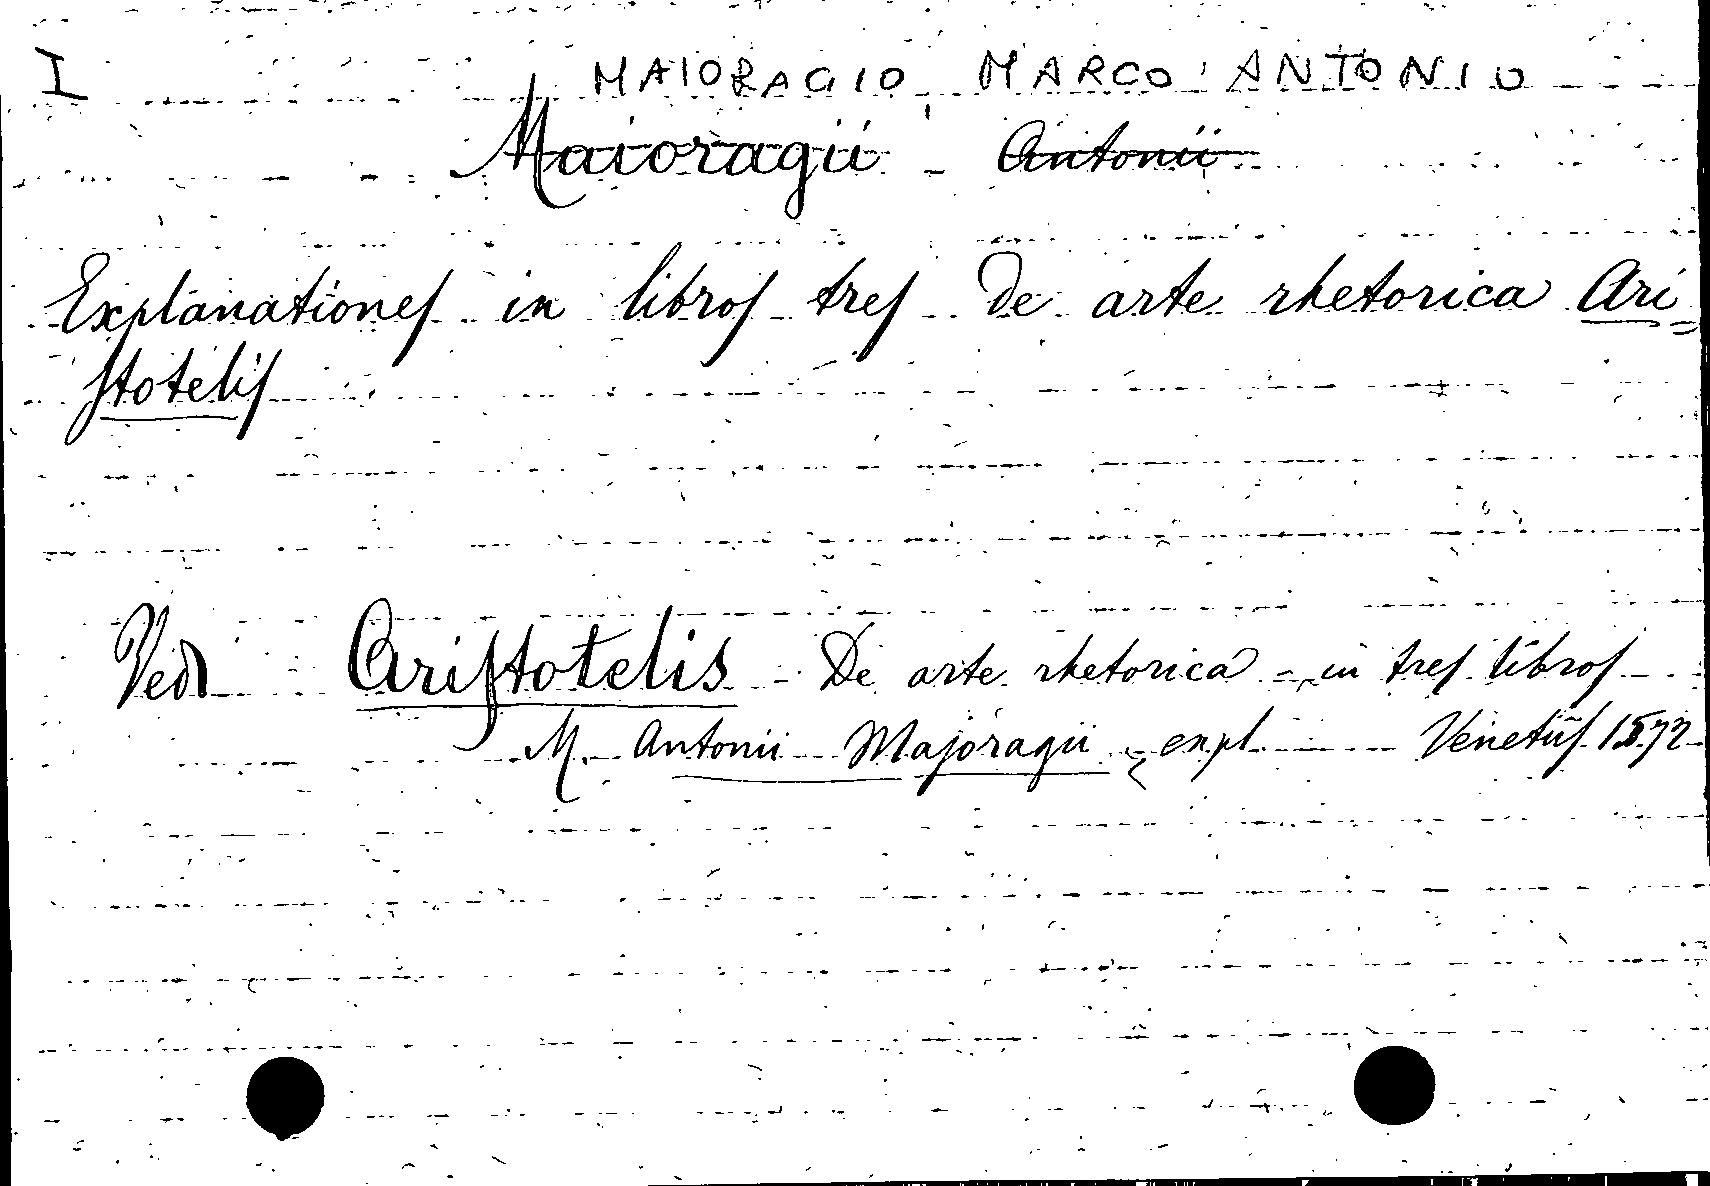 I MAIORAGIO, MARCO ANTONIO
Maioragii - Antonii
Explanationes in libros tres De arte rhetorica Ari=
stotelis
Vedi Aristotelis - De arte rhetorica - in tres libros
M. Antonii Majoragii expl. Venetiis 1572